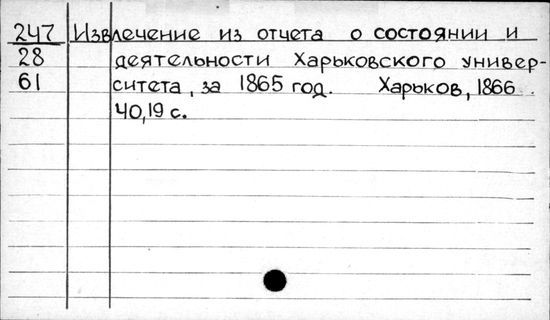 247 Извлечение из отчета о состоянии и
28 деятельности Харьковского универ-
61 ситета, за 1865 год. Харьков, 1866.
40,19 с.